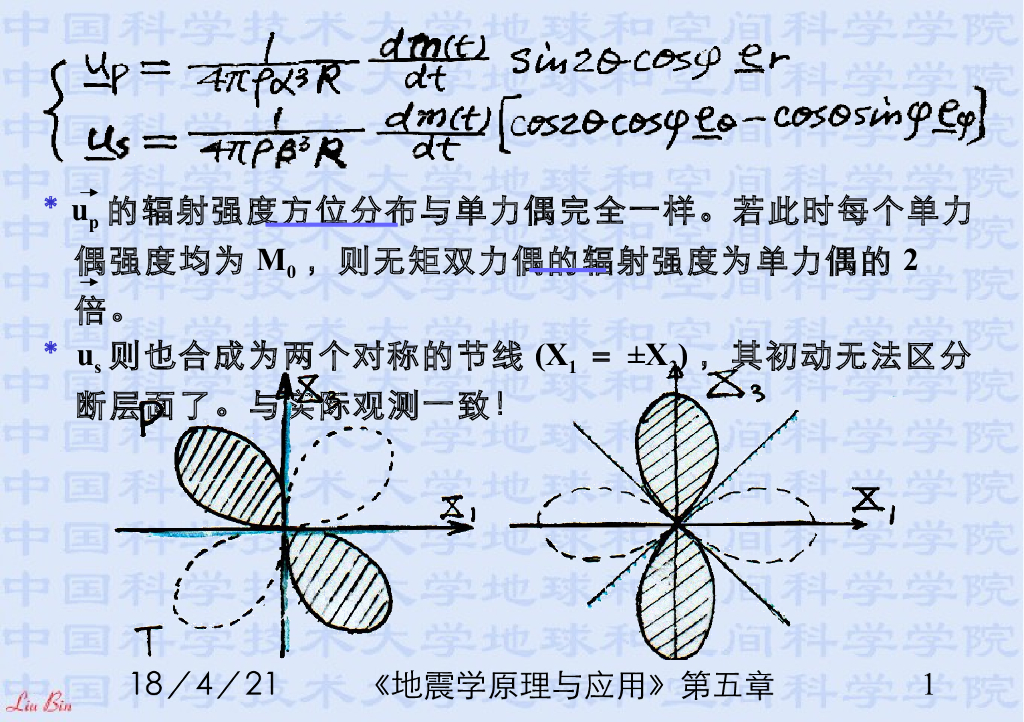 u_p = 1/(4πρα³R) dm(t)/dt sin2θcosφ e_r
u_s = 1/(4πρβ³R) dm(t)/dt [cos2θcosφ e_θ - cosθsinφ e_φ]
* u_p 的辐射强度方位分布与单力偶完全一样。若此时每个单力
偶强度均为 M₀ ，则无矩双力偶的辐射强度为单力偶的 2
倍。
* u_s 则也合成为两个对称的节线 (X₁ = ±X₃) ，其初动无法区分
断层面了。与实际观测一致！
P
X₃
X₁
T
X₃
X₁
18／4／21
《地震学原理与应用》第五章
1
Liu Bin
中国科学技术大学地球和空间科学学院